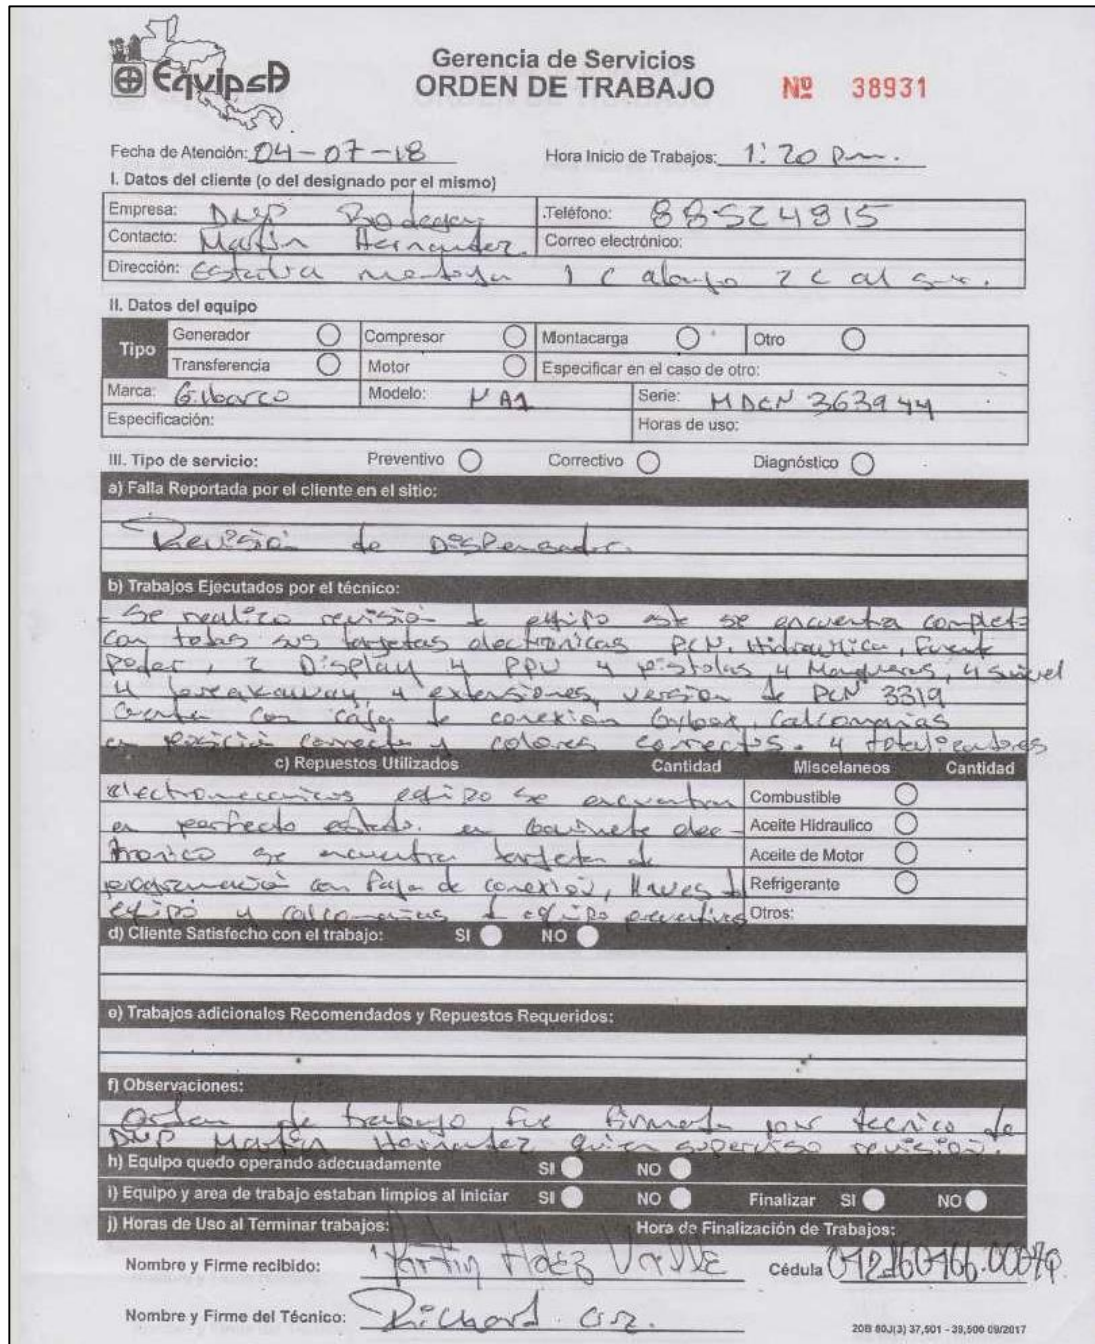 EquipsA
Gerencia de Servicios
ORDEN DE TRABAJO Nº 38931
Fecha de Atención: 04-07-18 Hora Inicio de Trabajos: 1:20 pm.
I. Datos del cliente (o del designado por el mismo)
Empresa: DNP Bodegas Teléfono: 88524815
Contacto: Martin Hernandez. Correo electrónico:
Dirección: Estatua montoya 1 C abajo 2 C al sur.
II. Datos del equipo
Tipo Generador Compresor Montacarga Otro
Transferencia Motor Especificar en el caso de otro:
Marca: Gilbarco Modelo: NA1 Serie: MDCN 363944
Especificación: Horas de uso:
III. Tipo de servicio: Preventivo Correctivo Diagnóstico
a) Falla Reportada por el cliente en el sitio:
Revisión de Dispensador.
b) Trabajos Ejecutados por el técnico:
- Se realizo revisión de equipo este se encuentra completo
con todas sus tarjetas electrónicas PCN, Hidraulica, Fuente
Poder, 2 Display 4 PPU 4 pistolas 4 Mangueras, 4 swivel
4 breakaway, 4 extensiones, version de PCN 3319
Cuenta con caja de conexión, Calcomanias
en posición correcta y colores correctos. 4 totalizadores
c) Repuestos Utilizados Cantidad Miscelaneos Cantidad
electromecanicos equipo se encuentra Combustible
en perfecto estado. en gabinete elec- Aceite Hidraulico
tronico se encuentra tarjeta de Aceite de Motor
programación con faja de conexión, llaves de Refrigerante
equipo y calcomanias de equipo preventivas Otros:
d) Cliente Satisfecho con el trabajo: SI NO
e) Trabajos adicionales Recomendados y Repuestos Requeridos:
f) Observaciones:
Orden de trabajo fue firmada por tecnico de
DNP Martin Hernandez quien superviso revisión.
h) Equipo quedo operando adecuadamente SI NO
i) Equipo y area de trabajo estaban limpios al iniciar SI NO Finalizar SI NO
j) Horas de Uso al Terminar trabajos: Hora de Finalización de Trabajos:
Nombre y Firme recibido: Martin Hdez Valle Cédula
Nombre y Firme del Técnico: Richard
20B 80J(3) 37,501 - 39,500 09/2017